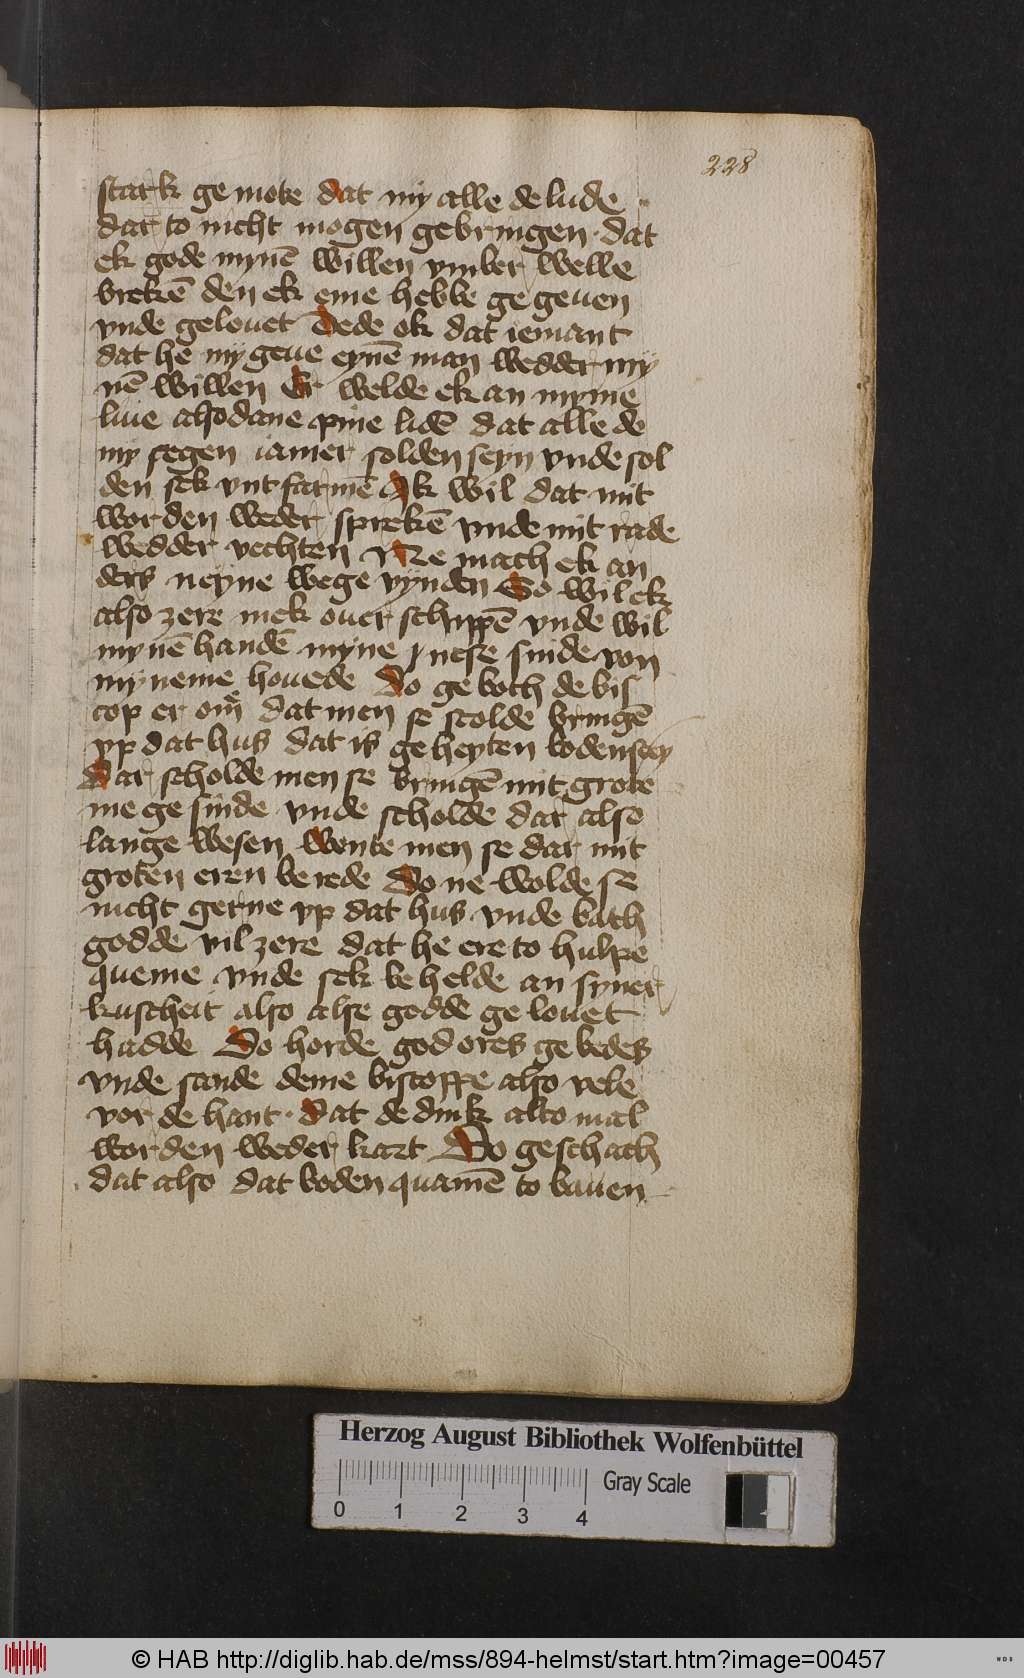 228
stark ge mote dat my alle de lude
dat to nicht mogen gebringen · dat
ek gode mynē willen ymber welle
brekē den ek eme hebbe ge geuen
vnde gelouet Dede ok dat iemant
dat he my geue eynē man wedder my
nē willen Er welde ek an myme
liue alsodane pine lidē dat alle de
my segen iamer solden seyn vnde sol
den sek vnt farmē Ek wil dat mit
worden weder sprekē vnde mit rade
wedder vechten Ne mach ek an
ders neyne wege vynden So wil ek
also zere mek ouer schippē vnde wil
mynē handē myne nese snide von
myneme houede Do ge both de bis
cop er om dat men se scolde bringē
vp dat hus dat is ge heyten bodensten
Dar scholde men se bringē mit grote
me ge sinde vnde scholde dar also
lange wesen wente men se dar mit
groten eren be rede Do ne wolde se
nicht gerne vp dat hus vnde bath
godde vil zere dat he ere to hulpe
queme vnde sek be helde an syner
kuscheit also alse godde ge louet
hadde Do horde god ores ge bedes
vnde sande deme biscoppe also vele
vor de hant · dat de dink alto mal
worden weder kart Do geschach
dat also dat boden quamē to bauen
Herzog August Bibliothek Wolfenbüttel
Gray Scale
0 1 2 3 4
© HAB http://diglib.hab.de/mss/894-helmst/start.htm?image=00457